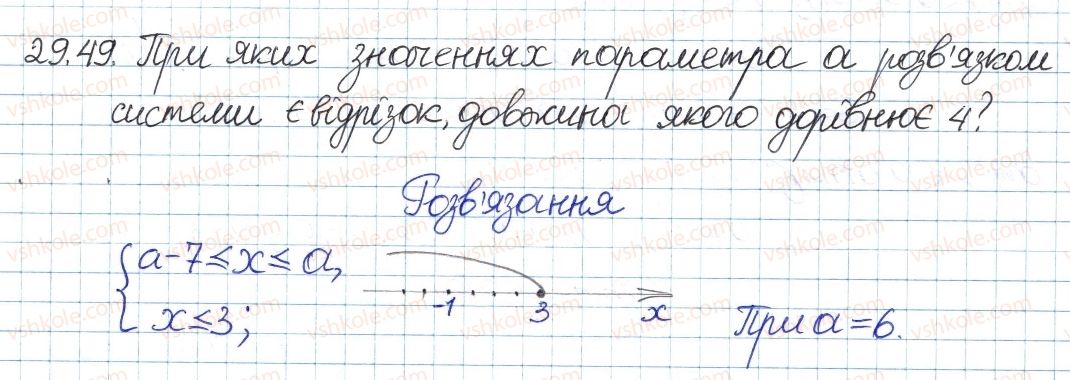 29.49. При яких значеннях параметра a розв'язком
системи є відрізок, довжина якого дорівнює 4?
Розв'язання
{ a-7≤x≤a,
x≤3;
-1 3 x
При a=6.